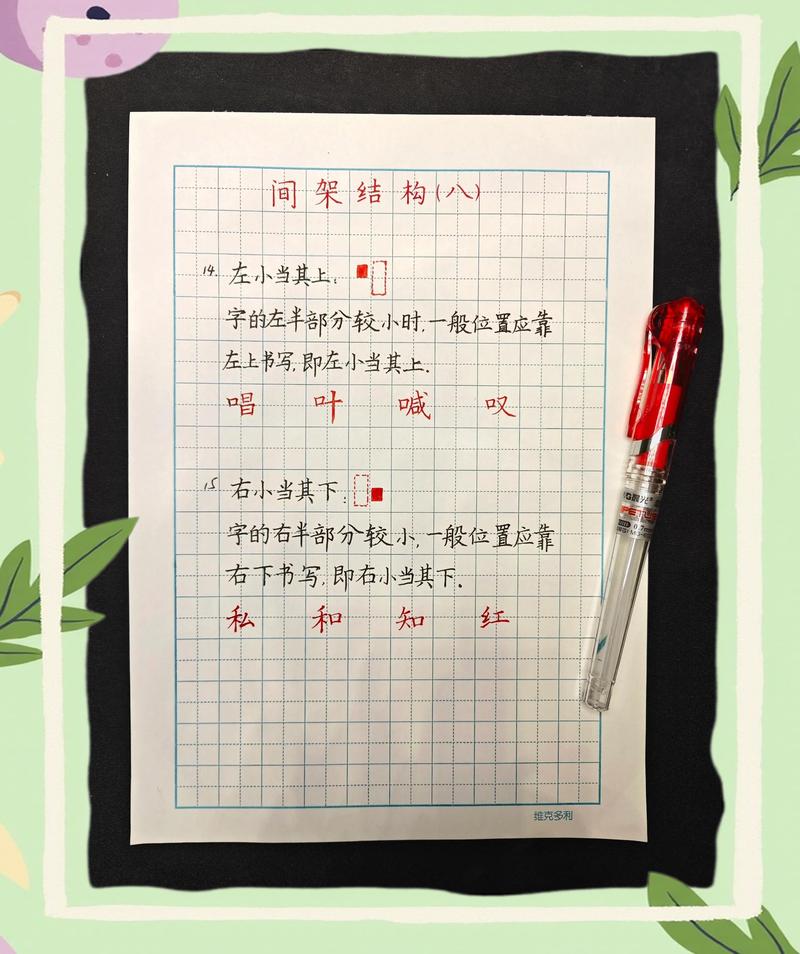 间架结构(八)
14. 左小当其上:
字的左半部分较小时,一般位置应靠
左上书写,即左小当其上.
唱 叶 喊 叹
15 右小当其下:
字的右半部分较小,一般位置应靠
右下书写,即右小当其下.
私 和 知 红
维克多利